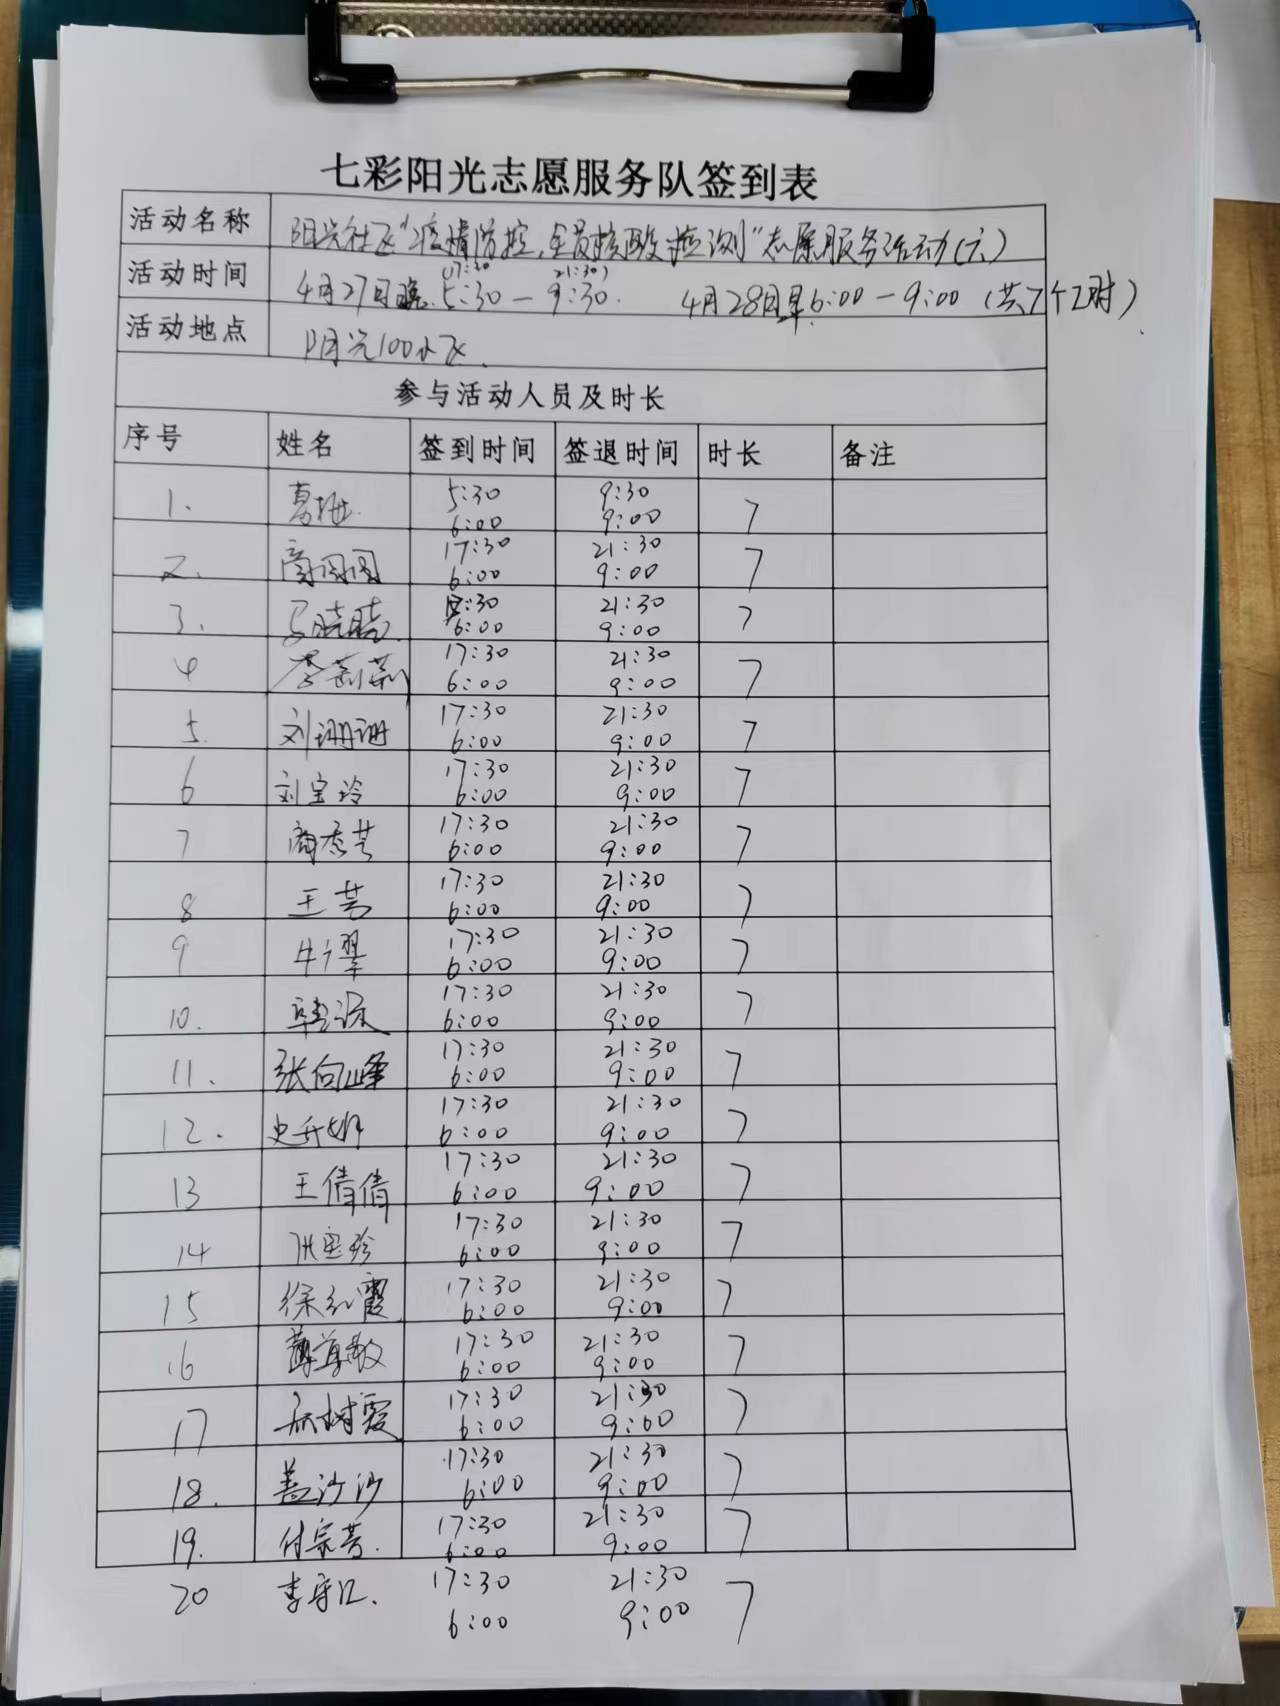 七彩阳光志愿服务队签到表
活动名称 阳光社区"疫情防控,全员核酸检测"志愿服务活动(六)
(17:30 21:30)
活动时间 4月27日晚5:30-9:30. 4月28日早6:00-9:00 (共7个小时)
活动地点 阳光100小区.
参与活动人员及时长
序号 姓名 签到时间 签退时间 时长 备注
5:30 9:30
1. 葛梅. 6:00 9:00 7
17:30 21:30
2. 商园园 6:00 9:00 7
17:30 21:30
3. 马晓晓. 6:00 9:00 7
17:30 21:30
4 李莉莉 6:00 9:00 7
17:30 21:30
5. 刘珊珊 6:00 9:00 7
17:30 21:30
6 刘宝玲 6:00 9:00 7
17:30 21:30
7 商秀芝 6:00 9:00 7
17:30 21:30
8 王芳 6:00 9:00 7
17:30 21:30
9 牛翠 6:00 9:00 7
17:30 21:30
10. 韩 6:00 9:00 7
17:30 21:30
11. 张向峰 6:00 9:00 7
17:30 21:30
12. 史升娟 6:00 9:00 7
17:30 21:30
13 王倩倩 6:00 9:00 7
17:30 21:30
14 洪宝珍 6:00 9:00 7
17:30 21:30
15 徐红霞 6:00 9:00 7
17:30 21:30
16 薄尊敬 6:00 9:00 7
17:30 21:30
17 树霞 6:00 9:00 7
17:30 21:30
18. 盖沙沙 6:00 9:00 7
17:30 21:30
19. 付宗芳. 6:00 9:00 7
17:30 21:30
20 李守江. 6:00 9:00 7